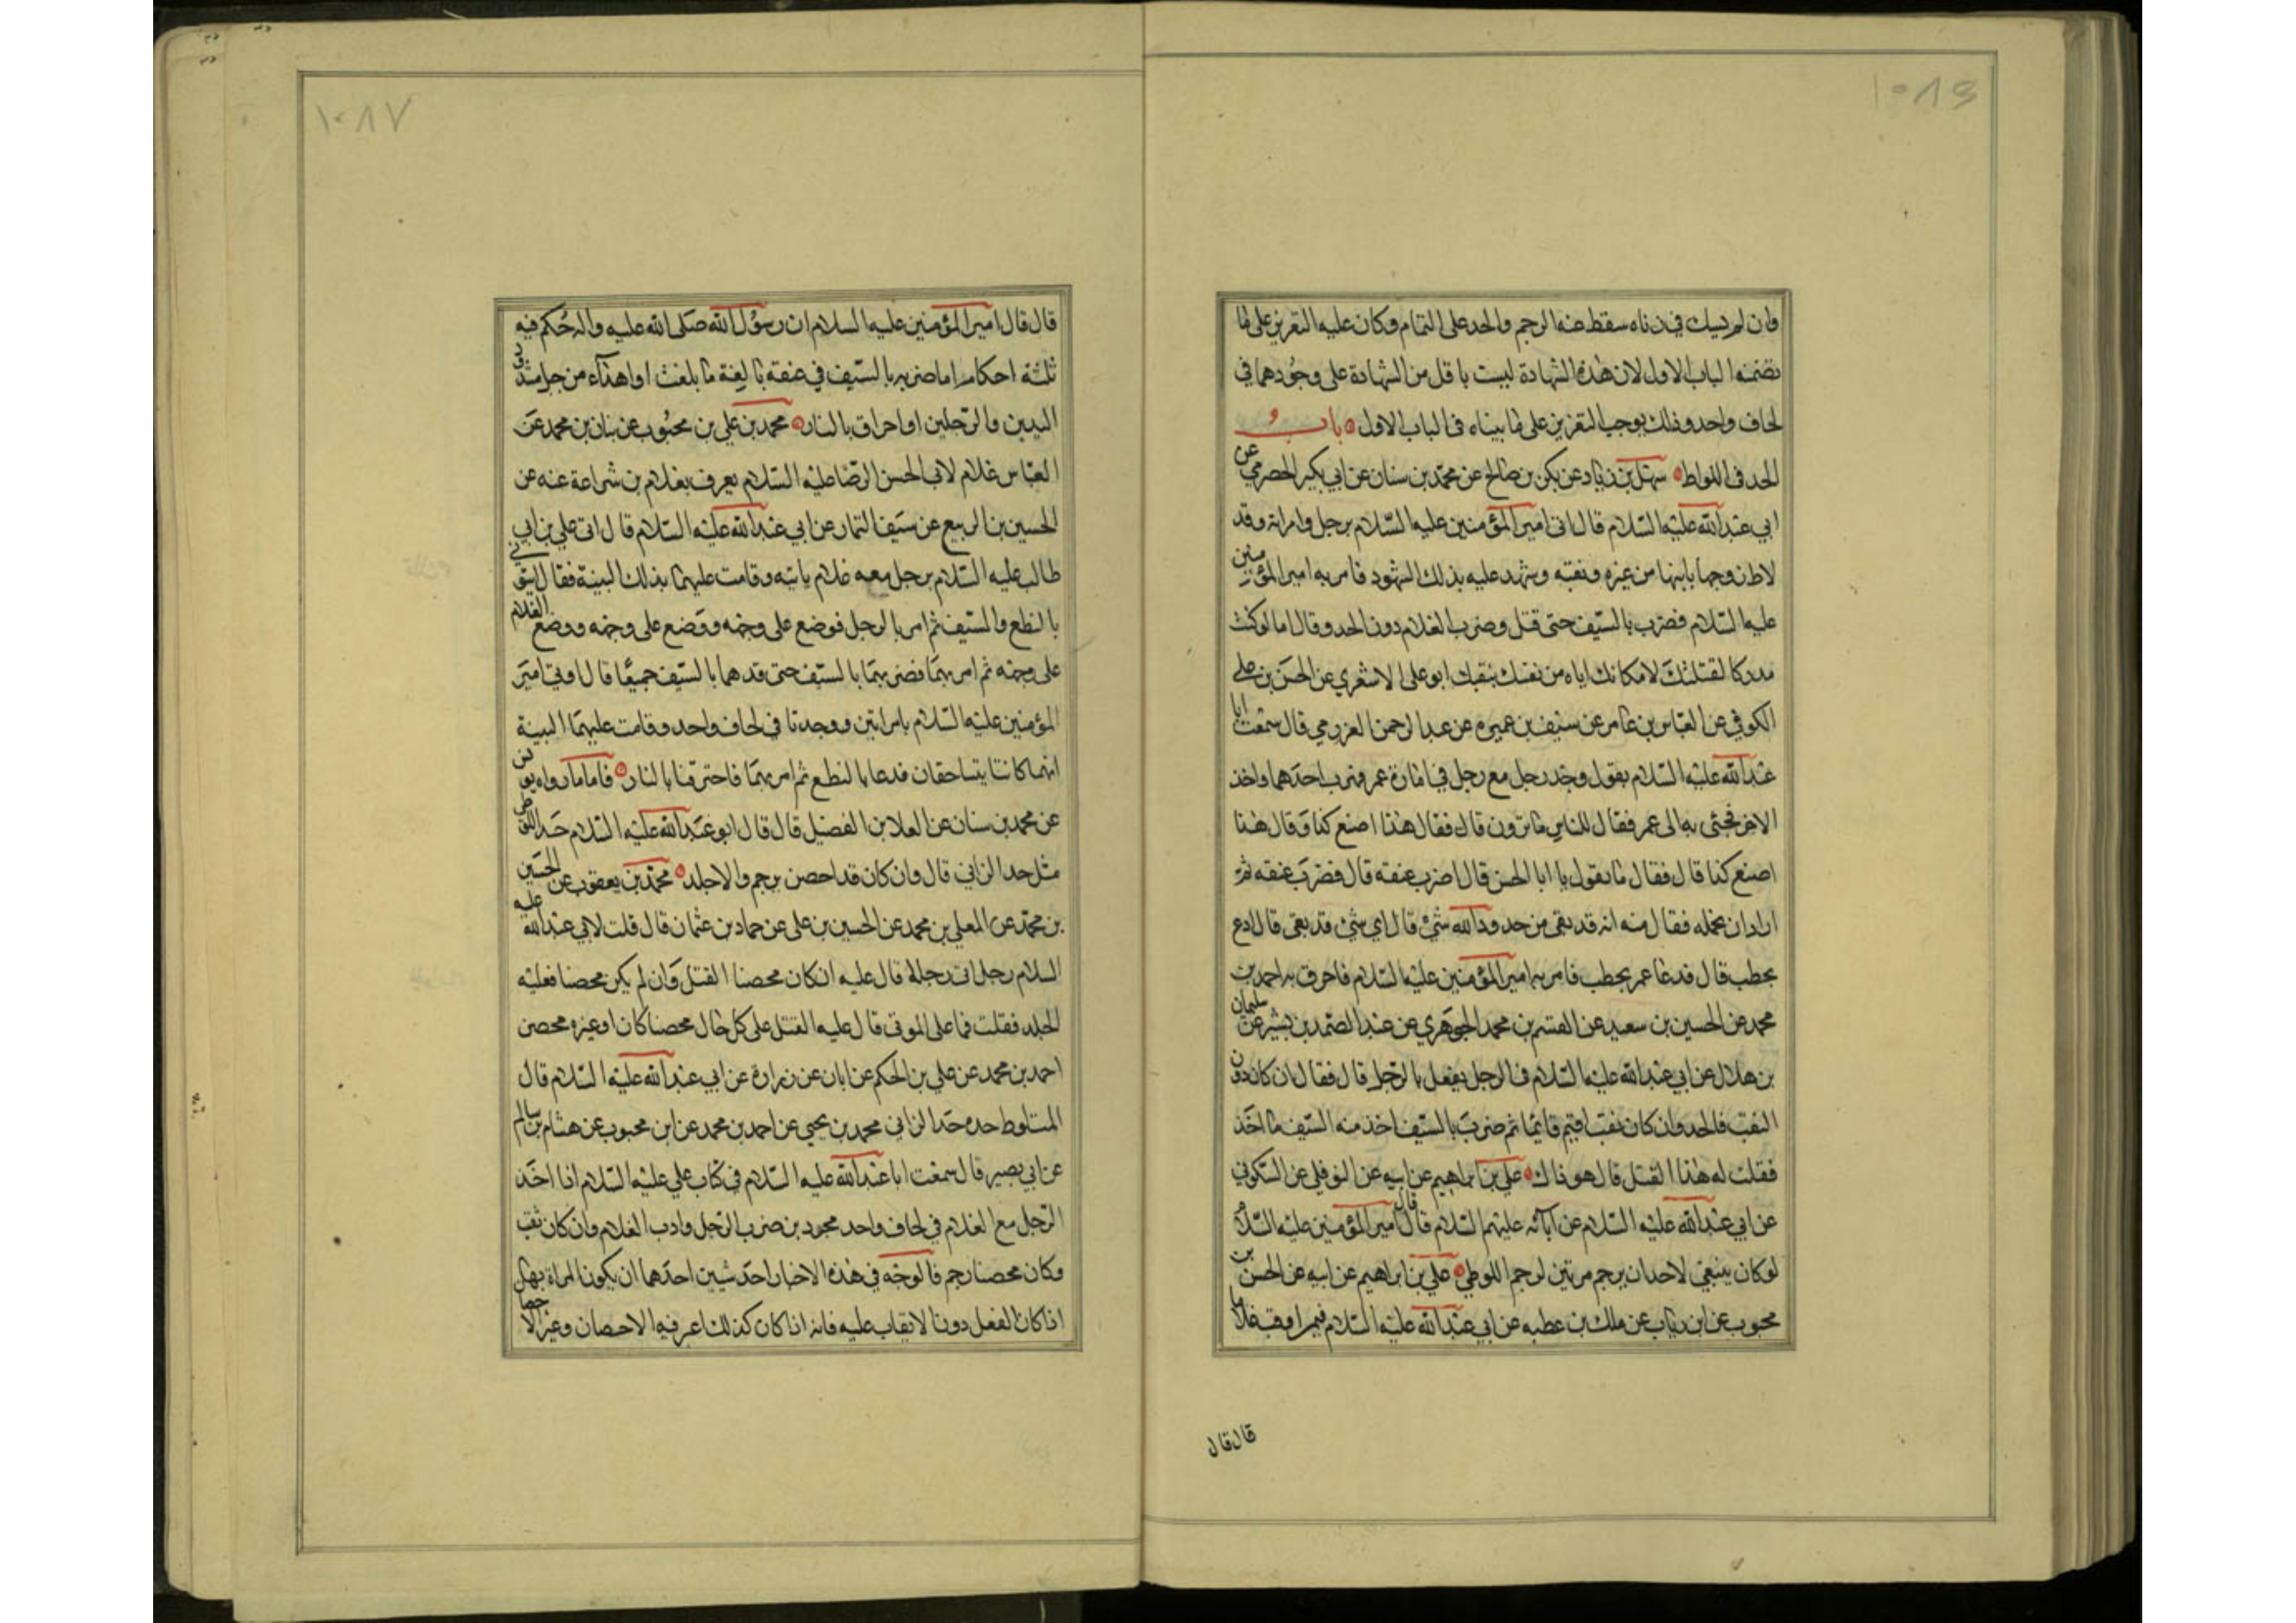 ١٠٨٦
وان لم يثبت في زناه سقط عنه الرجم والحد على التمام وكان عليه التعزير على ما
تضمنه الباب الاول لان هذه الشهادة ليست باقل من الشهادة على وجودهما في
لحاف واحد وذلك يوجب التعزير على ما بيناه في الباب الاول باب
الحد في اللواط سهل بن زياد عن بكر بن صالح عن محمد بن سنان عن ابي بكير الحضرمي عن
ابي عبد الله عليه السلام قال اتى امير المؤمنين عليه السلام برجل وامراته وقد
لاط زوجها بابنها من غيره ونقبه وشهد عليه بذلك الشهود فامر به امير المؤمنين
عليه السلام فضرب بالسيف حتى قتل وضرب الغلام دون الحد وقال اما لو كنت
مدركا لقتلتك لامكانك اياه من نفسك بنقبك ابو على الاشعري عن الحسن بن علي
الكوفي عن العباس بن عامر عن سيف بن عميره عن عبد الرحمن العزرمي قال سمعت ابا
عبد الله عليه السلام يقول وجد رجل مع رجل في امارة عمر فهرب احدهما واخذ
الاخر فجئ به الى عمر فقال للناس ما ترون قال فقال هذا اصنع كذا وقال هذا
اصنع كذا قال فقال ما تقول يا ابا الحسن قال اضرب عنقه قال فضرب عنقه ثم
اراد ان يحمله فقال مه انه قد بقى من حدود الله شئ قال اي شئ قد بقى قال ادع
بحطب قال فدعا عمر بحطب فامر به امير المؤمنين عليه السلام فاحرق به احمد بن
محمد عن الحسين بن سعيد عن القسم بن محمد الجوهري عن عبد الصمد بن بشير عن سليمان
بن هلال عن ابي عبد الله عليه السلام في الرجل يفعل بالرجل قال فقال ان كان دون
النقب فالحد وان كان نقب اقيم قايما ثم ضرب بالسيف اخذ منه السيف ما اخذ
فقلت له هذا القتل قال هو ذاك علي بن ابراهيم عن ابيه عن النوفلي عن السكوني
عن ابي عبد الله عليه السلام عن آبائه عليهم السلام قال قال امير المؤمنين عليه السلام
لو كان ينبغي لاحد ان يرجم مرتين لرجم اللوطي علي بن ابراهيم عن ابيه عن الحسن بن
محبوب عن ابن رئاب عن ملك بن عطيه عن ابي عبد الله عليه السلام فيمن اوقب غلاما
قال قال
١٠٨٧
قال قال امير المؤمنين عليه السلام ان رسول الله صلى الله عليه واله حكم فيه
ثلثة احكام اما ضربه بالسيف في عنقه بالغة ما بلغت او اهداء من جبل مشدود
اليدين والرجلين او احراق بالنار محمد بن علي بن محبوب عن بنان بن محمد عن
العباس غلام لابي الحسن الرضا عليه السلام يعرف بغلام بن شراعة عنه عن
الحسين بن الربيع عن سيف التمار عن ابي عبد الله عليه السلام قال اتى علي بن ابي
طالب عليه السلام برجل معه غلام ياتيه وقامت عليهما بذلك البينة فقال ايتوني
بالنطع والسيف ثم امر بالرجل فوضع على وجهه ووضع على وجهه ووضع الغلام
على وجهه ثم امر بهما فضربهما بالسيف حتى قدهما بالسيف جميعا قال اوتي امير
المؤمنين عليه السلام بامراتين ووجدتا في لحاف واحد وقامت عليهما البينة
انهما كانتا يتساحقان فدعا بالنطع ثم امر بهما فاحترقتا بالنار فاما ما رواه يونس
عن محمد بن سنان عن العلا بن الفضيل قال قال ابو عبد الله عليه السلام حد اللوطي
مثل حد الزاني قال وان كان قد احصن يرجم والا جلد محمد بن يعقوب عن الحسين
بن محمد عن المعلى بن محمد عن الحسين بن على عن حماد بن عثمان قال قلت لابي عبد الله عليه
السلام رجل اتى رجلا قال عليه ان كان محصنا القتل وان لم يكن محصنا فعليه
الجلد فقلت فما على الموتى قال عليه القتل على كل حال محصنا كان او غيره محصن
احمد بن محمد عن علي بن الحكم عن ابان عن زرارة عن ابي عبد الله عليه السلام قال
المتلوط حده حد الزاني محمد بن يحيى عن احمد بن محمد عن ابن محبوب عن هشام بن سالم
عن ابي بصير قال سمعت ابا عبد الله عليه السلام في كتاب علي عليه السلام اذا اخذ
الرجل مع الغلام في لحاف واحد مجردين ضرب الرجل وادب الغلام وان كان نقب
وكان محصنا رجم فالوجه في هذه الاخبار احد شيين احدهما ان يكون المراة بها
اذا كان الفعل دون الايقاب عليه فانه اذا كان كذلك اعرفيه الاحصان وغير الاحصا